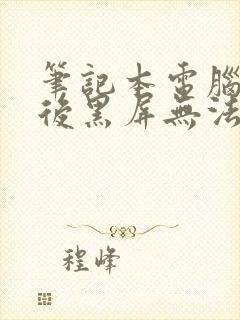 筆記本電腦
後黑屏無法
程峰